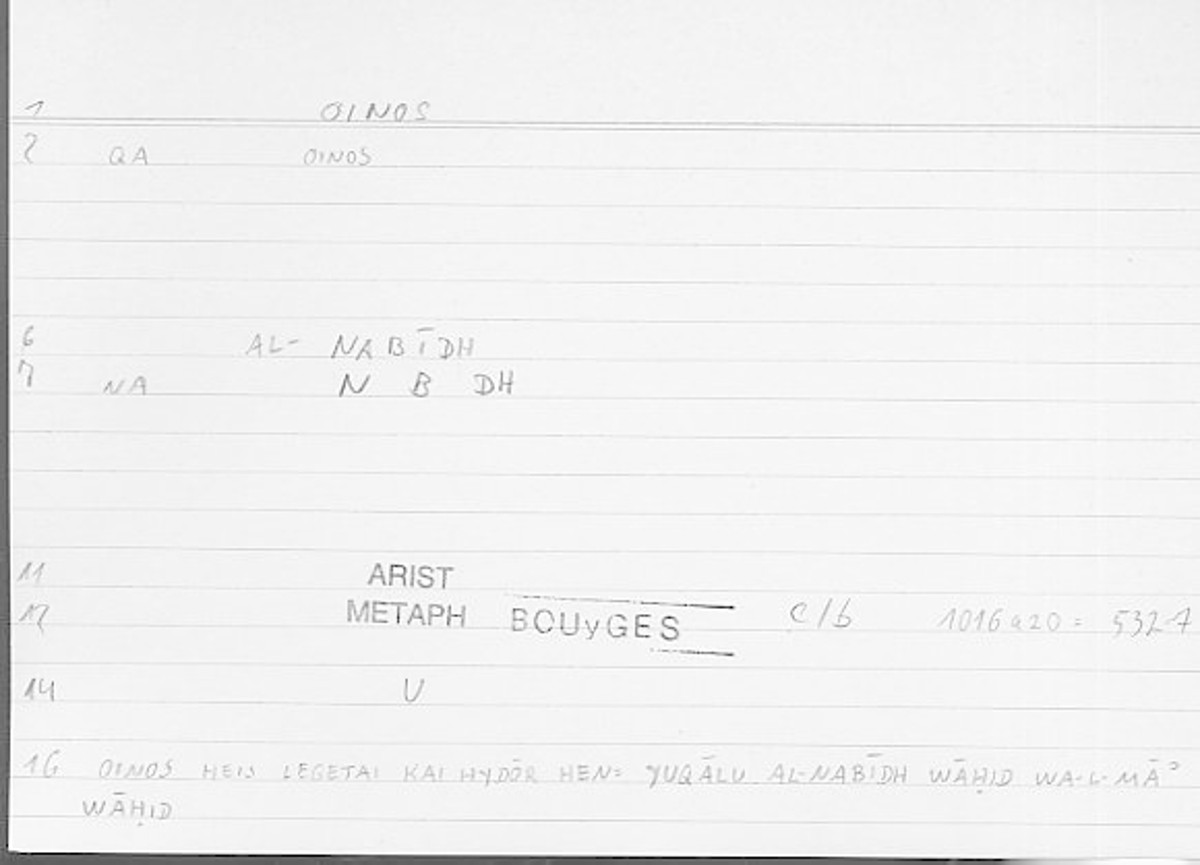 1 OINOS
2 QA OINOS
6 AL- NABĪDH
7 NA N B DH
11 ARIST
12 METAPH BOUyGES c/b 1016a20 = 532-7
14 U
16 OINOS HEIS LEGETAI KAI HYDŌR HEN= YUQĀLU AL-NABĪDH WĀḤID WA-L-MĀʾ
WĀḤID